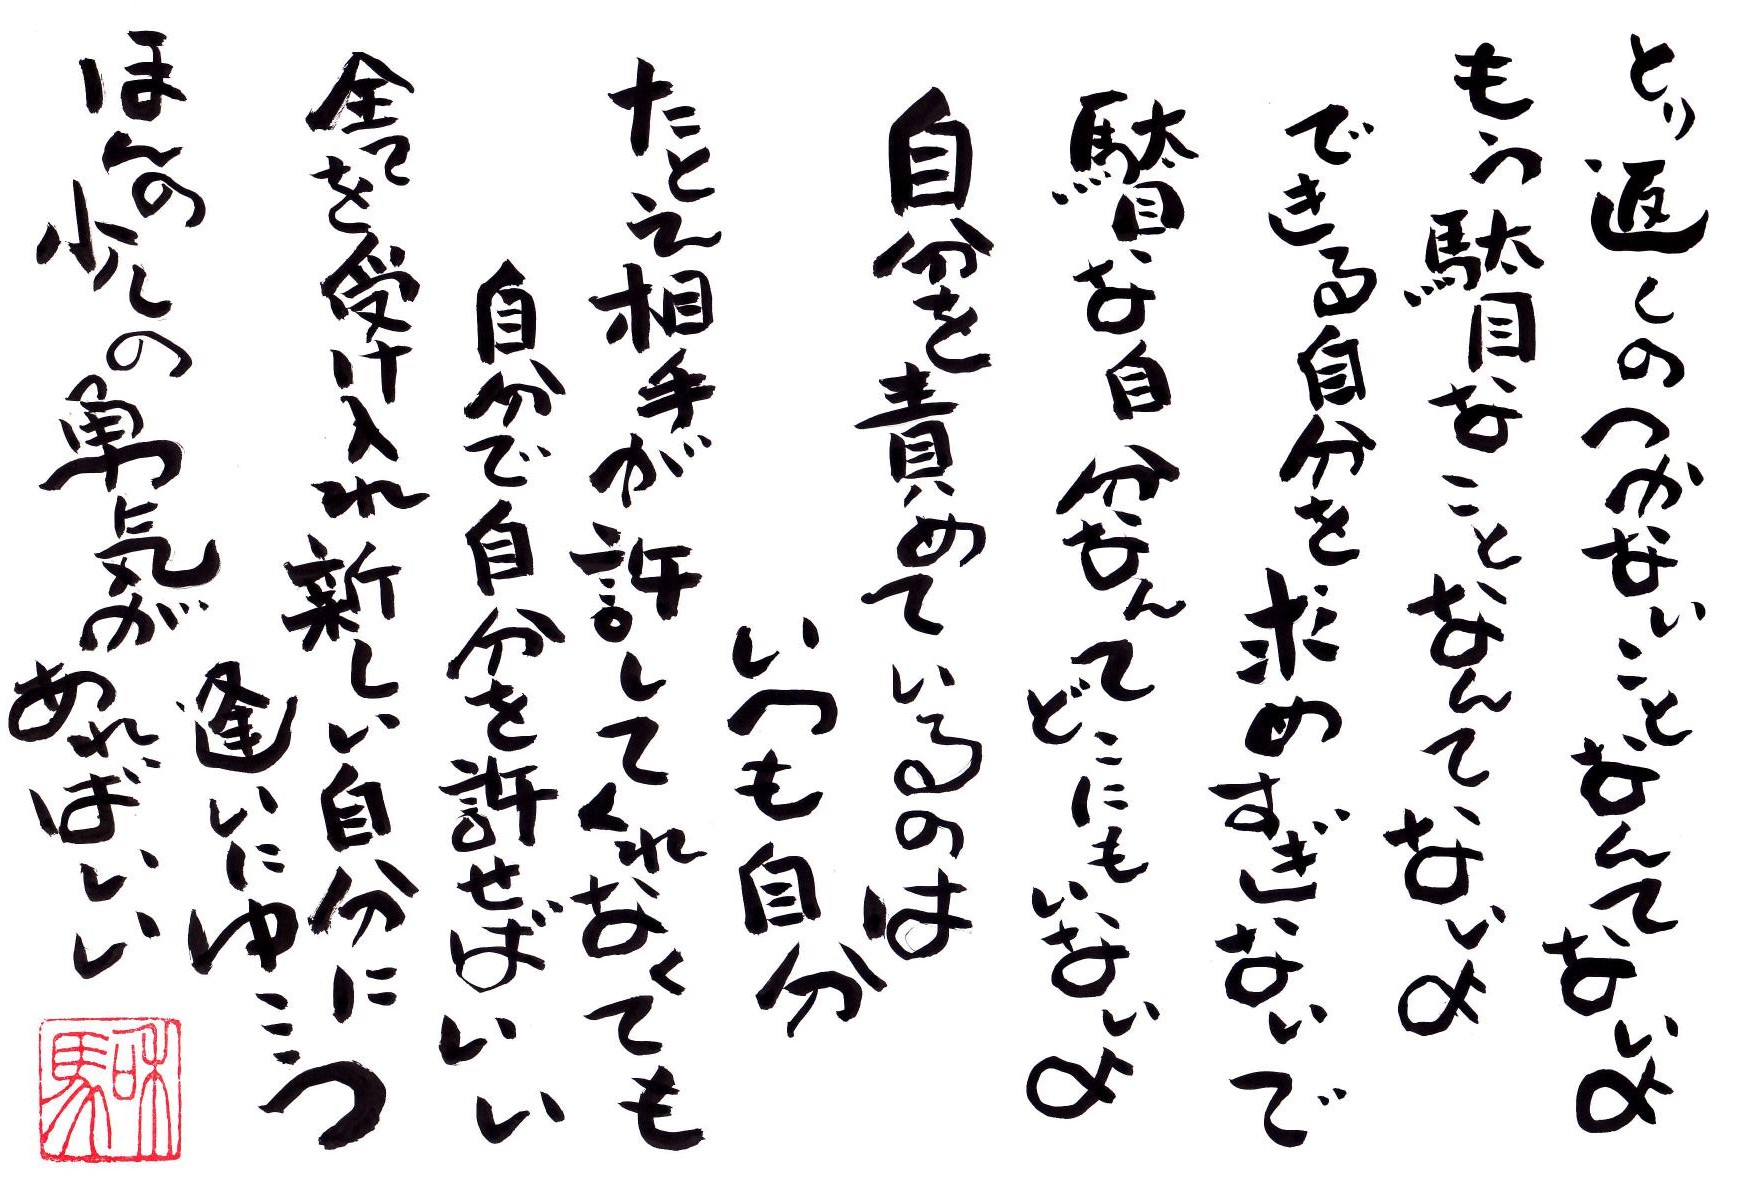 とり返しのつかないことなんてないよ
もう駄目なことなんてないよ
できる自分を求めすぎないで
駄目な自分なんてどこにもいないよ
自分を責めているのは
いつも自分
たとえ相手が許してくれなくても
自分で自分を許せばいい
全てを受け入れ新しい自分に
逢いにゆこう
ほんの少しの勇気があればいい